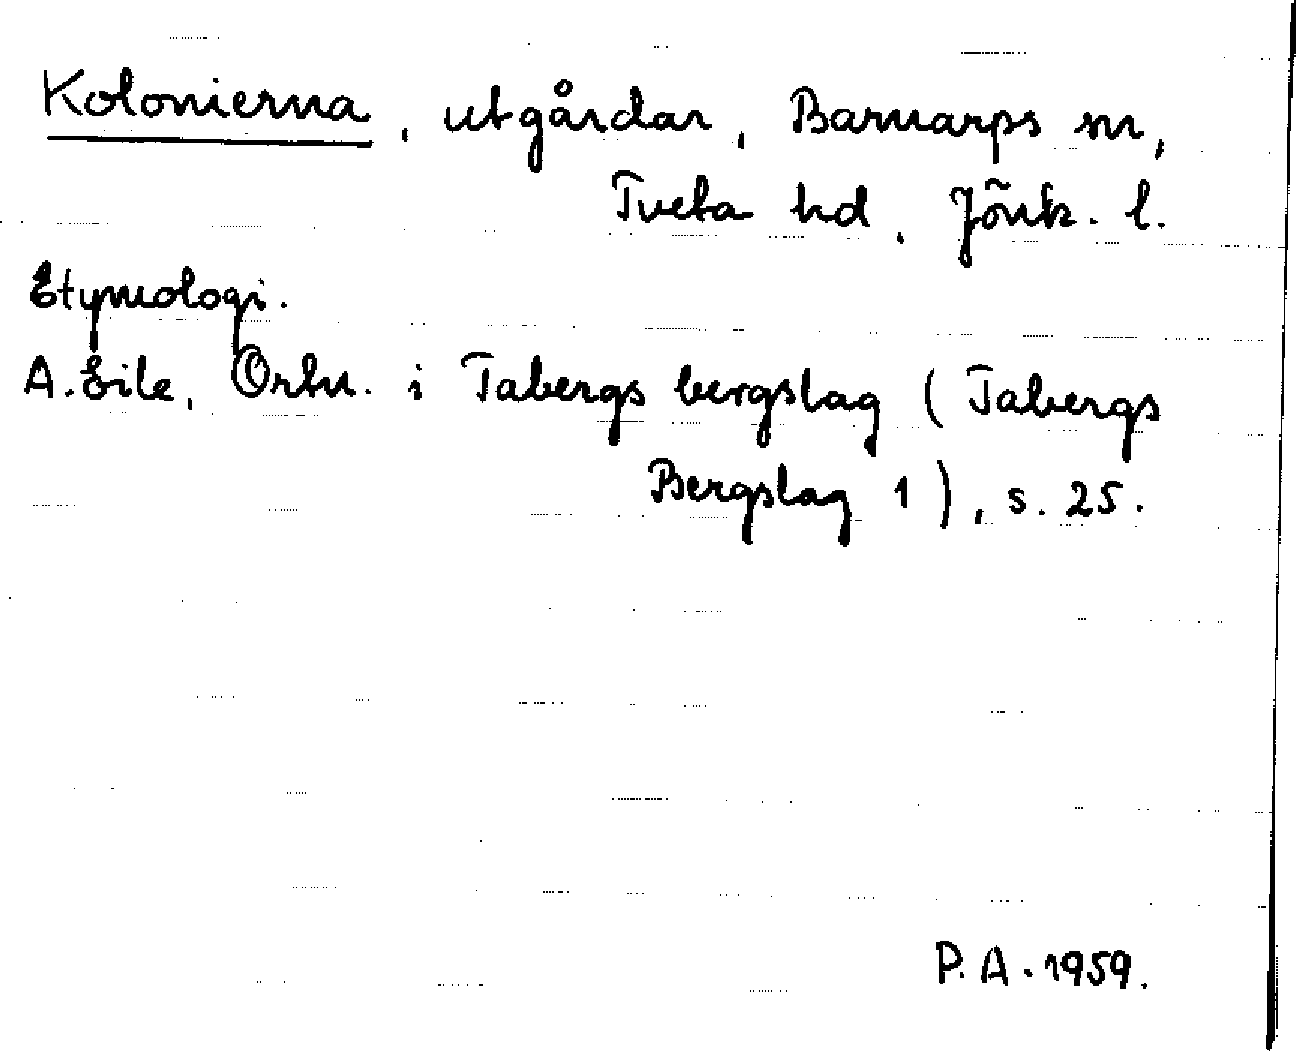 Kolonierna, utgårdar, Barnarps sn,
Tveta hd, Jönk. l.
Etymologi.
A. Eile, Ortn. i Tabergs bergslag (Tabergs
Bergslag 1), s. 25.
P. A. 1959.